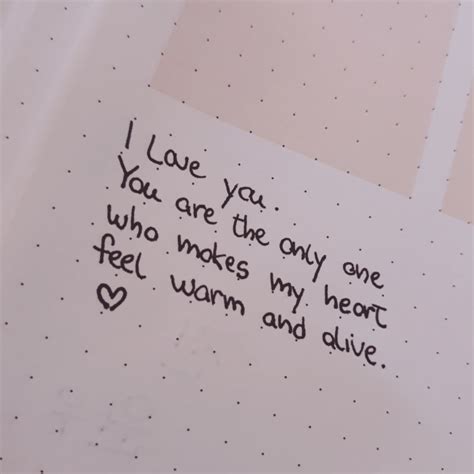 I Love you.
You are the only one
who makes my heart
feel warm and alive.
♡